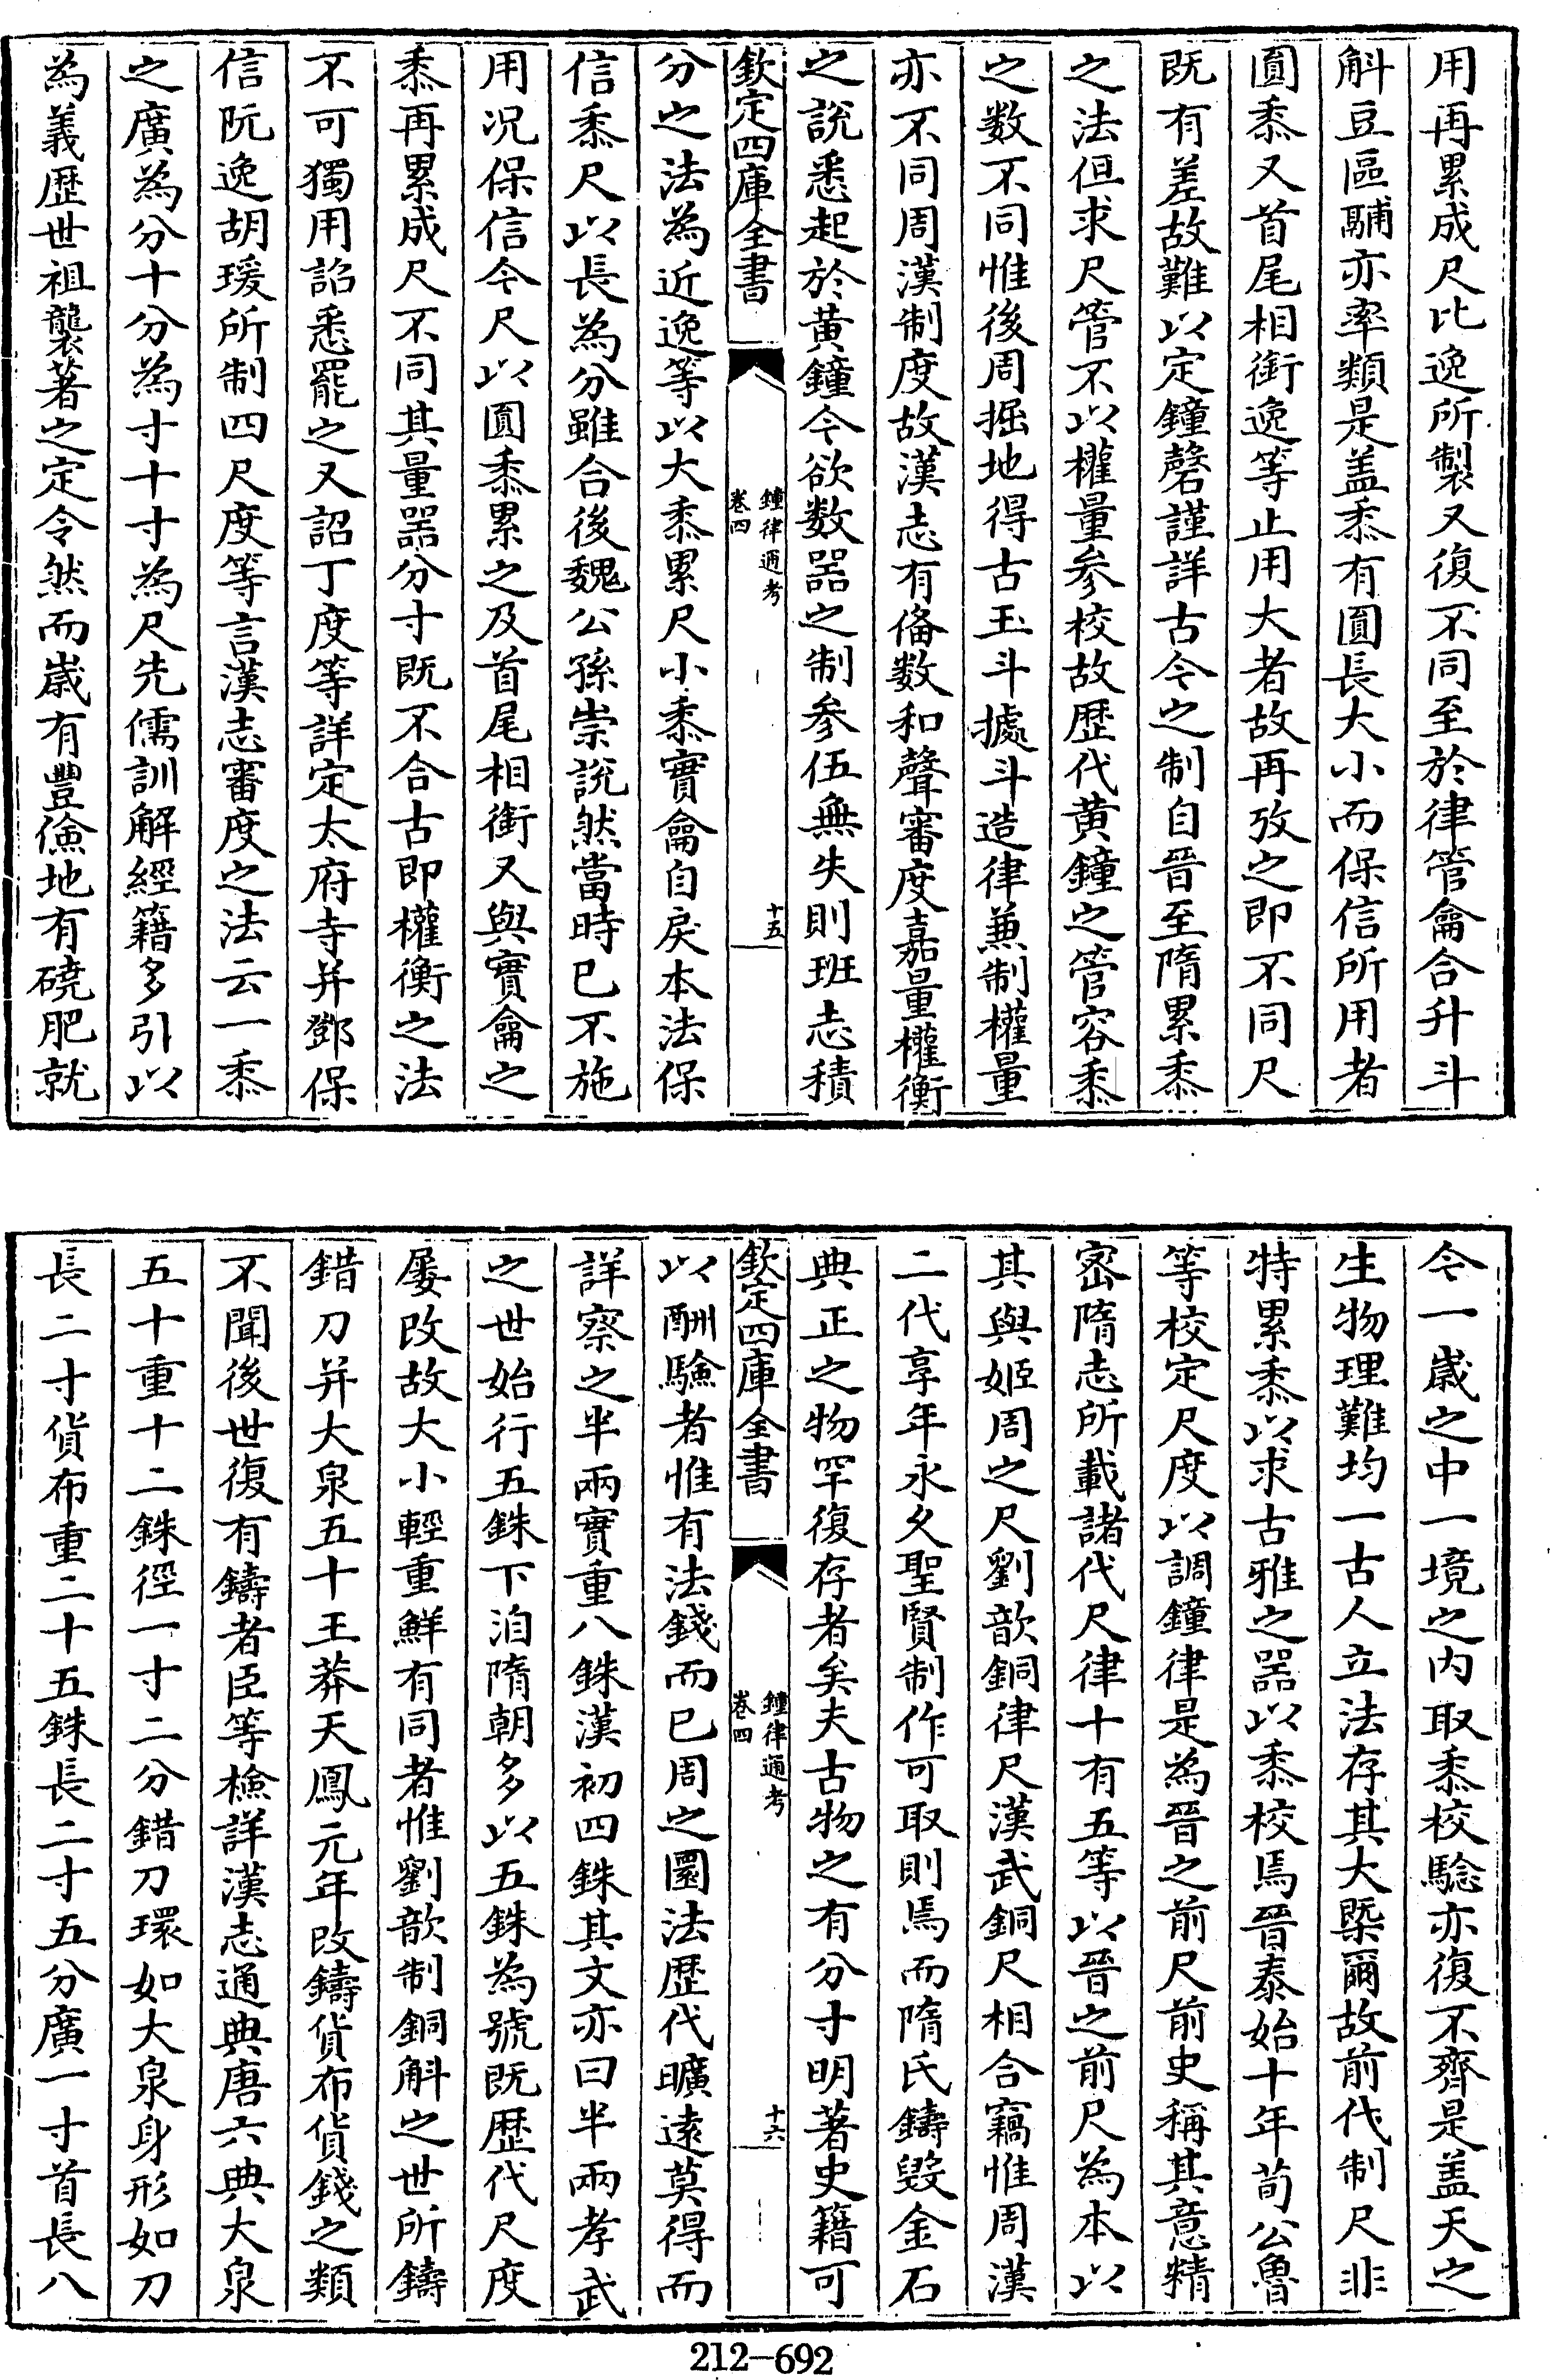 用再累成尺比逸所製又復不同至於律管龠合升斗
斛豆區鬴亦率類是盖黍有圓長大小而保信所用者
圓黍又首尾相銜逸等止用大者故再攷之即不同尺
既有差故難以定鐘磬謹詳古今之制自晉至隋累黍
之法但求尺管不以權量參校故歴代黄鐘之管容黍
之數不同惟後周掘地得古玉斗據斗造律兼制權量
亦不同周漢制度故漢志有俻數和聲審度嘉量權衡
之說悉起於黄鐘今欲數器之制參伍無失則班志積
欽定四庫全書
鐘律通考
卷四
十五
分之法為近逸等以大黍累尺小黍實龠自戾本法保
信黍尺以長為分雖合後魏公孫崇說然當時已不施
用况保信今尺以圓黍累之及首尾相銜又與實龠之
黍再累成尺不同其量器分寸既不合古即權衡之法
不可獨用詔悉罷之又詔丁度等詳定太府寺并鄧保
信阮逸胡瑗所制四尺度等言漢志審度之法云一黍
之廣為分十分為寸十寸為尺先儒訓解經籍多引以
為義歴世祖襲著之定令然而歲有豐儉地有磽肥就
令一歲之中一境之内取黍校騐亦復不齊是盖天之
生物理難均一古人立法存其大槩爾故前代制尺非
特累黍以求古雅之器以黍校焉晉泰始十年荀公魯
等校定尺度以調鐘律是為晉之前尺前史稱其意精
宻隋志所載諸代尺律十有五等以晉之前尺為本以
其與姬周之尺劉歆銅律尺漢武銅尺相合竊惟周漢
二代享年永久聖賢制作可取則焉而隋氏鑄毀金石
典正之物罕復存者矣夫古物之有分寸明著史籍可
欽定四庫全書
鐘律通考
卷四
十六
以酬驗者惟有法錢而已周之圜法歴代曠逺莫得而
詳察之半兩實重八銖漢初四銖其文亦曰半兩孝武
之世始行五銖下洎隋朝多以五銖為號既歴代尺度
屢改故大小輕重鮮有同者惟劉歆制銅斛之世所鑄
錯刀并大泉五十王莽天鳳元年改鑄貨布貨錢之類
不聞後世復有鑄者臣等檢詳漢志通典唐六典大泉
五十重十二銖徑一寸二分錯刀環如大泉身形如刀
長二寸貨布重二十五銖長二寸五分廣一寸首長八
212-692